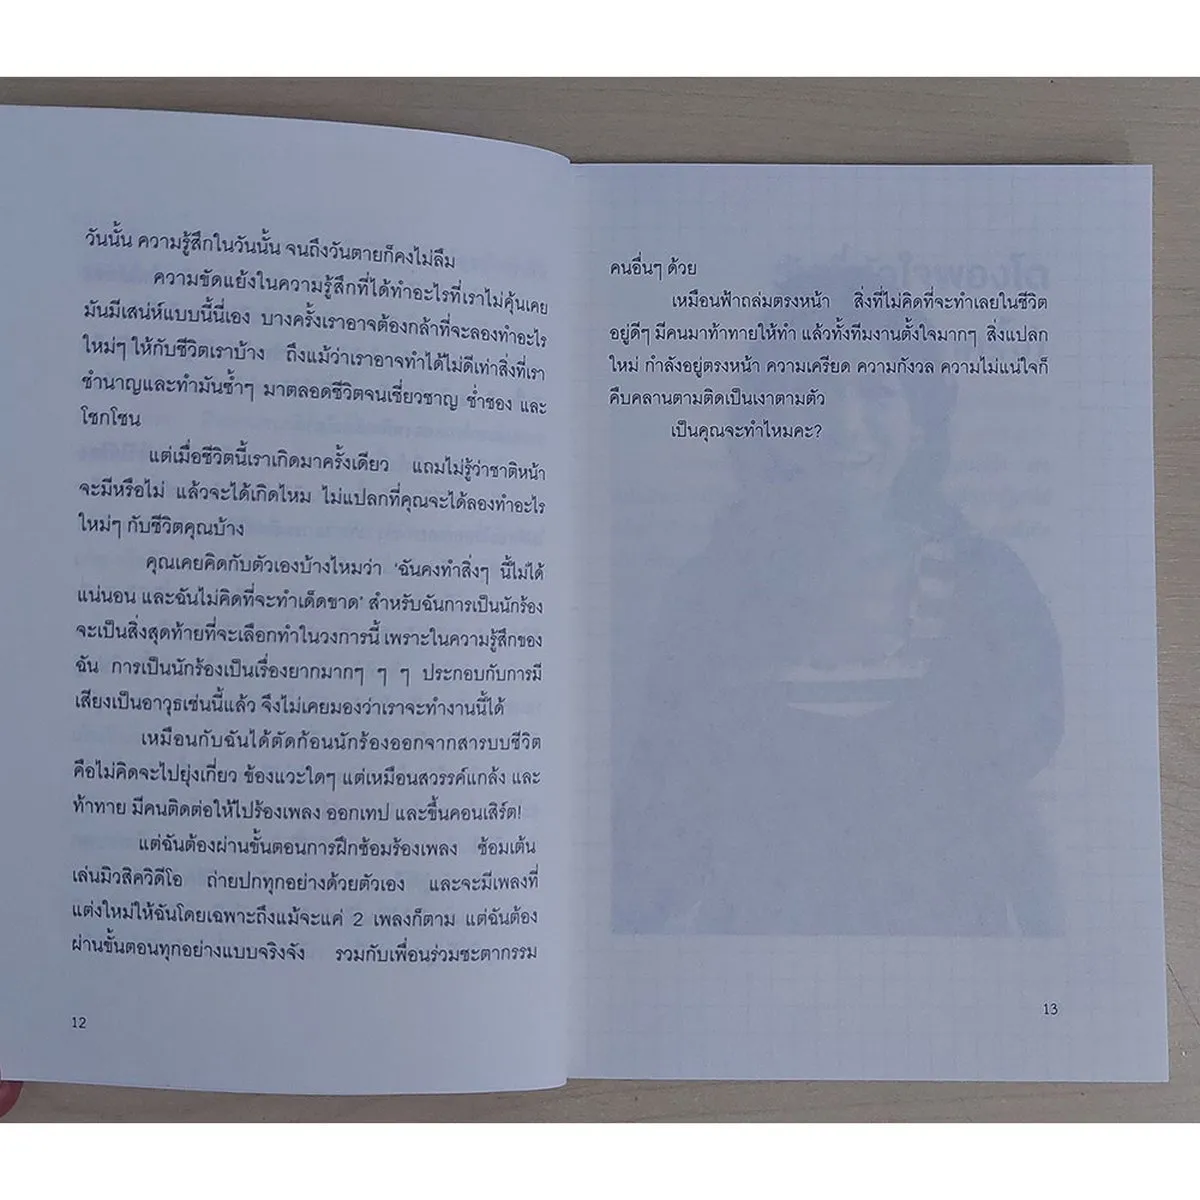 วันนั้น ความรู้สึกในวันนั้น จนถึงวันตายก็คงไม่ลืม
ความขัดแย้งในความรู้สึกที่ได้ทำอะไรที่เราไม่คุ้นเคย
มันมีเสน่ห์แบบนี้นี่เอง บางครั้งเราอาจต้องกล้าที่จะลองทำอะไร
ใหม่ๆ ให้กับชีวิตเราบ้าง ถึงแม้ว่าเราอาจทำได้ไม่ดีเท่าสิ่งที่เรา
ชำนาญและทำมันซ้ำๆ มาตลอดชีวิตจนเชี่ยวชาญ ช่ำชอง และ
โชกโชน
แต่เมื่อชีวิตนี้เราเกิดมาครั้งเดียว แถมไม่รู้ว่าชาติหน้า
จะมีหรือไม่ แล้วจะได้เกิดไหม ไม่แปลกที่คุณจะได้ลองทำอะไร
ใหม่ๆ กับชีวิตคุณบ้าง
คุณเคยคิดกับตัวเองบ้างไหมว่า 'ฉันคงทำสิ่งๆ นี้ไม่ได้
แน่นอน และฉันไม่คิดที่จะทำเด็ดขาด' สำหรับฉันการเป็นนักร้อง
จะเป็นสิ่งสุดท้ายที่จะเลือกทำในวงการนี้ เพราะในความรู้สึกของ
ฉัน การเป็นนักร้องเป็นเรื่องยากมากๆ ๆ ๆ ประกอบกับการมี
เสียงเป็นอาวุธเช่นนี้แล้ว จึงไม่เคยมองว่าเราจะทำงานนี้ได้
เหมือนกับฉันได้ตัดก้อนนักร้องออกจากสารบบชีวิต
คือไม่คิดจะไปยุ่งเกี่ยว ข้องแวะใดๆ แต่เหมือนสวรรค์แกล้ง และ
ท้าทาย มีคนติดต่อให้ไปร้องเพลง ออกเทป และขึ้นคอนเสิร์ต!
แต่ฉันต้องผ่านขั้นตอนการฝึกซ้อมร้องเพลง ซ้อมเต้น
เล่นมิวสิควิดีโอ ถ่ายปกทุกอย่างด้วยตัวเอง และจะมีเพลงที่
แต่งใหม่ให้ฉันโดยเฉพาะถึงแม้จะแค่ 2 เพลงก็ตาม แต่ฉันต้อง
ผ่านขั้นตอนทุกอย่างแบบจริงจัง รวมกับเพื่อนร่วมชะตากรรม
12
คนอื่นๆ ด้วย
เหมือนฟ้าถล่มตรงหน้า สิ่งที่ไม่คิดที่จะทำเลยในชีวิต
อยู่ดีๆ มีคนมาท้าทายให้ทำ แล้วทั้งทีมงานตั้งใจมากๆ สิ่งแปลก
ใหม่ กำลังอยู่ตรงหน้า ความเครียด ความกังวล ความไม่แน่ใจก็
คืบคลานตามติดเป็นเงาตามตัว
เป็นคุณจะทำไหมคะ?
13